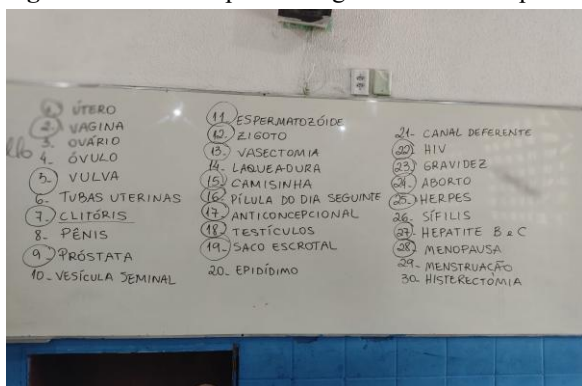 1. ÚTERO
2. VAGINA
3. OVÁRIO
4. ÓVULO
5. VULVA
6- TUBAS UTERINAS
7. CLITÓRIS
8- PÊNIS
9. PRÓSTATA
10- VESÍCULA SEMINAL
11. ESPERMATOZÓIDE
12. ZIGOTO
13- VASECTOMIA
14- LAQUEADURA
15. CAMISINHA
16- PÍLULA DO DIA SEGUINTE
17. ANTICONCEPCIONAL
18- TESTÍCULOS
19- SACO ESCROTAL
20- EPIDÍDIMO
21- CANAL DEFERENTE
22) HIV
23) GRAVIDEZ
24. ABORTO
25- HERPES
26- SÍFILIS
27- HEPATITE B e C
28- MENOPAUSA
29- MENSTRUAÇÃO
30- HISTERECTOMIA